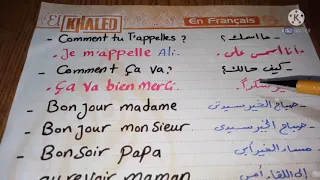 El KHALED En Français
Comment tu T'appelles? ما اسمك؟
Je m'appelle Ali. أنا اسمي علي.
Comment ça va? كيف حالك؟
ça va bien merci.
Bonjour madame صباح الخير سيدتي
Bonjour monsieur صباح الخير سيدي
Bonsoir Papa مساء الخير أبي
au revoir maman إلى اللقاء أمي